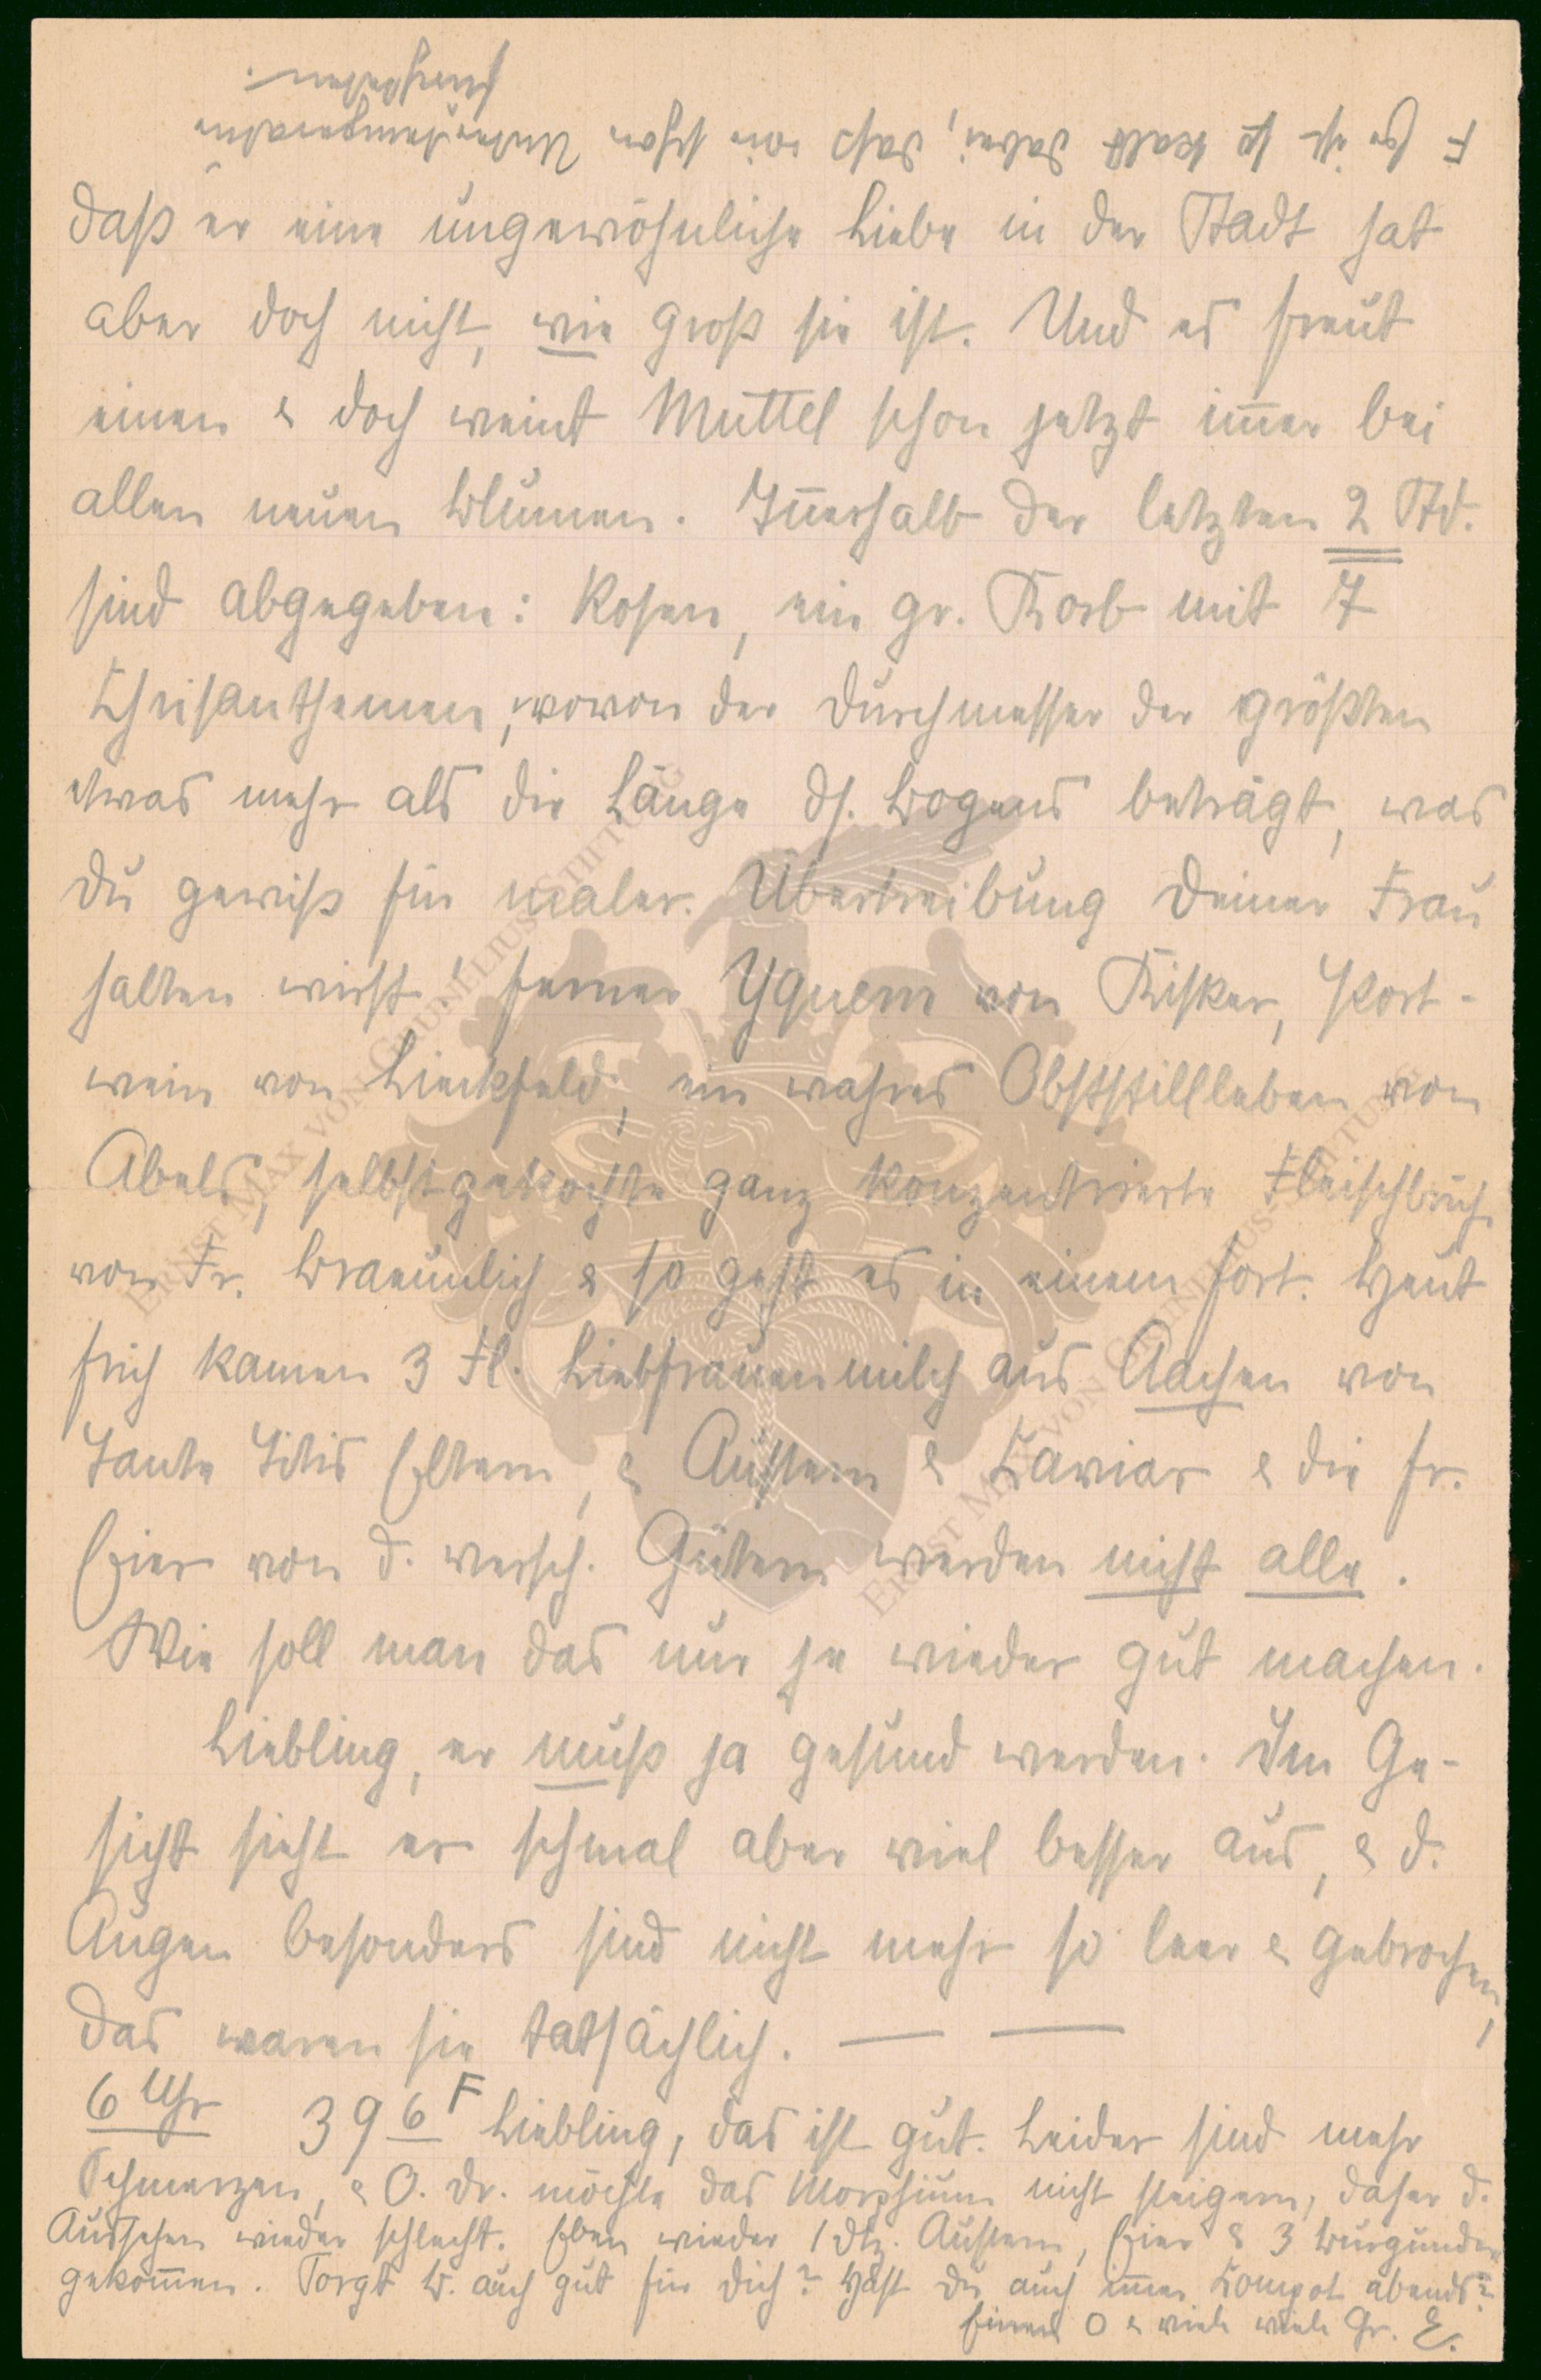 F Es ist so kalt dabei, daß wir schon Untersuchungen
daß er eine ungewöhnliche Liebe in der Stadt hat
aber doch nicht, wie groß sie ist. Und es freut
einen & doch weint Muttel schon jetzt im̅er bei
allen neuen Blumen. In̅erhalb der letzten 2 Std.
sind abgegeben: Rosen, ein gr. Korb mit 7
Chrisanthemen, wovon der Durchmesser der größten
etwas mehr als die Länge ds. Bogens beträgt, was
Du gewiß für maler. Übertreibung Deiner Frau
halten wirst! ferner Yquem von Kisker, Port-
wein von Lieckfeld, ein wahres Obststillleben von
Abels, selbstgekochte ganz konzentrierte Fleischbrüh.
von Fr. Braeunlich & so geht es in einem fort. Heut
früh kamen 3 Fl. Liebfrauenmilch aus Aachen von
Tante Titis Eltern, & Austern & Kaviar & die fr.
Eier von d. versch. Gütern werden nicht alle.
Wie soll man das nur je wieder gut machen.
Liebling, er muß ja gesund werden. Im Ge-
sicht sieht er schmal aber viel besser aus, & d.
Augen besonders sind nicht mehr so leer & gebrochen,
das waren sie tatsächlich. — —
6 Uhr 39 6 F Liebling, das ist gut. Leider sind mehr
Schmerzen, & O. Dr. möchte das Morphium nicht steigern, daher d.
Aussehen wieder schlecht. Eben wieder 1 Dtz. Austern, Eier & 3 Burgunder
gekom̅en. Sorgt B. auch gut für Dich? Hast Du auch im̅er Kompot abends?
Einen O & viele viele Gr. E.
ERNST MAX VON GRUNELIUS-STIFTUNG
ERNST MAX VON GRUNELIUS-STIFTUNG